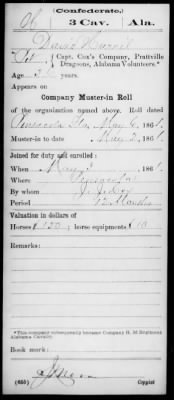 (Confederate.)
3 Cav. Ala.
David
Pvt., Capt. Cox's Company, Prattville
Dragoons, Alabama Volunteers.*
Age years.
Appears on
Company Muster-in Roll
of the organization named above. Roll dated
Pensacola Fla, May 6, 1861.
Muster-in to date May 2, 1861.
Joined for duty and enrolled:
When May 1861.
Where Pensacola
By whom
Period 12 Months
Valuation in dollars of
Horse, $ 150; horse equipments, $ 10
Remarks:
*This company subsequently became Company H, 3d Regiment
Alabama Cavalry.
Book mark:
(655) Copyist